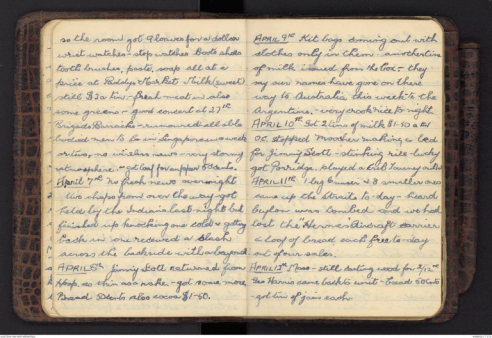 so the room got 9 loaves for a dollar
wrist watches - stop watches Boots shoes
tooth brushes, paste, soap all at a
price at Paddys Market. Milk (sweet)
still $2 a tin - fresh meat in also
some greens - good concert at 27th
Brigade Barracks - rumoured all able
bodied men to be in Singapore in a week
or two, no wireless news - very stormy
atmosphere - got loaf for supper 50 cents.
April 7th No fresh news overnight
two chaps from over the way - got
held by the Indians last night but
finished up knocking one cold & getting
back in one received a slash
across the backside with a bayonet
APRIL 8th Jimmy Scott returned from
Hosp. as thin as a rake - got some more
Bread 50 cents also cocoa $1-50.
APRIL 9th Kit bags coming out with
clothes only in them - another tin
of milk issued from the box - they
say our names have gone on there
way to Australia this week & the
Argentine, - very crook rice to-night
APRIL 10th Got 2 tins of milk $1-50 a tin
stopped making a bed
for Jimmy Scott - stinking rice - lucky
got Porridge, played a Crib Tourney with
APRIL 11th 1 big Cruiser & 3 smaller ones
came up the Straits to-day - heard
Ceylon was bombed and we had
lost the "Hermes" Aircraft carrier
a loaf of bread each free to-day
out of our sales.
APRIL 12th still carting wood for 2/12th
Geo Harris came back to unit - bread 50 cents
got tin of jam each.